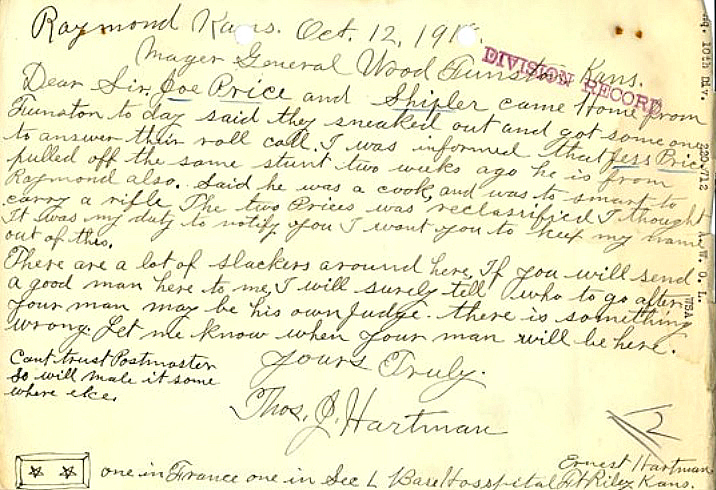 Raymond Kans. Oct. 12, 191
Mager General Wood Funston Kans.
DIVISION RECORD
Dear Sir, Joe Price and Shipler came home from
Funston to day said they sneaked out and got some one
to answer their roll call. I was informed that Jess Price
pulled off the same stunt two weeks ago he is from
Raymond also. Said he was a cook, and was to smart to
carry a rifle. The two Prices was reclassified I thought
It was my duty to notify you I want you to keep my name
out of this.
There are a lot of slackers around here, If you will send
a good man here to me, I will surely tell who to go after.
Your man may be his own Judge. there is something
wrong. Let me know when your man will be here.
Cant trust Postmaster
So will male it some
where else.
Yours Truly.
Thos. J. Hartman
one in France one in Sec L Base Hosspital
Ernest Hartman
Ft Riley Kans.
10th div.
A. W. O. L.